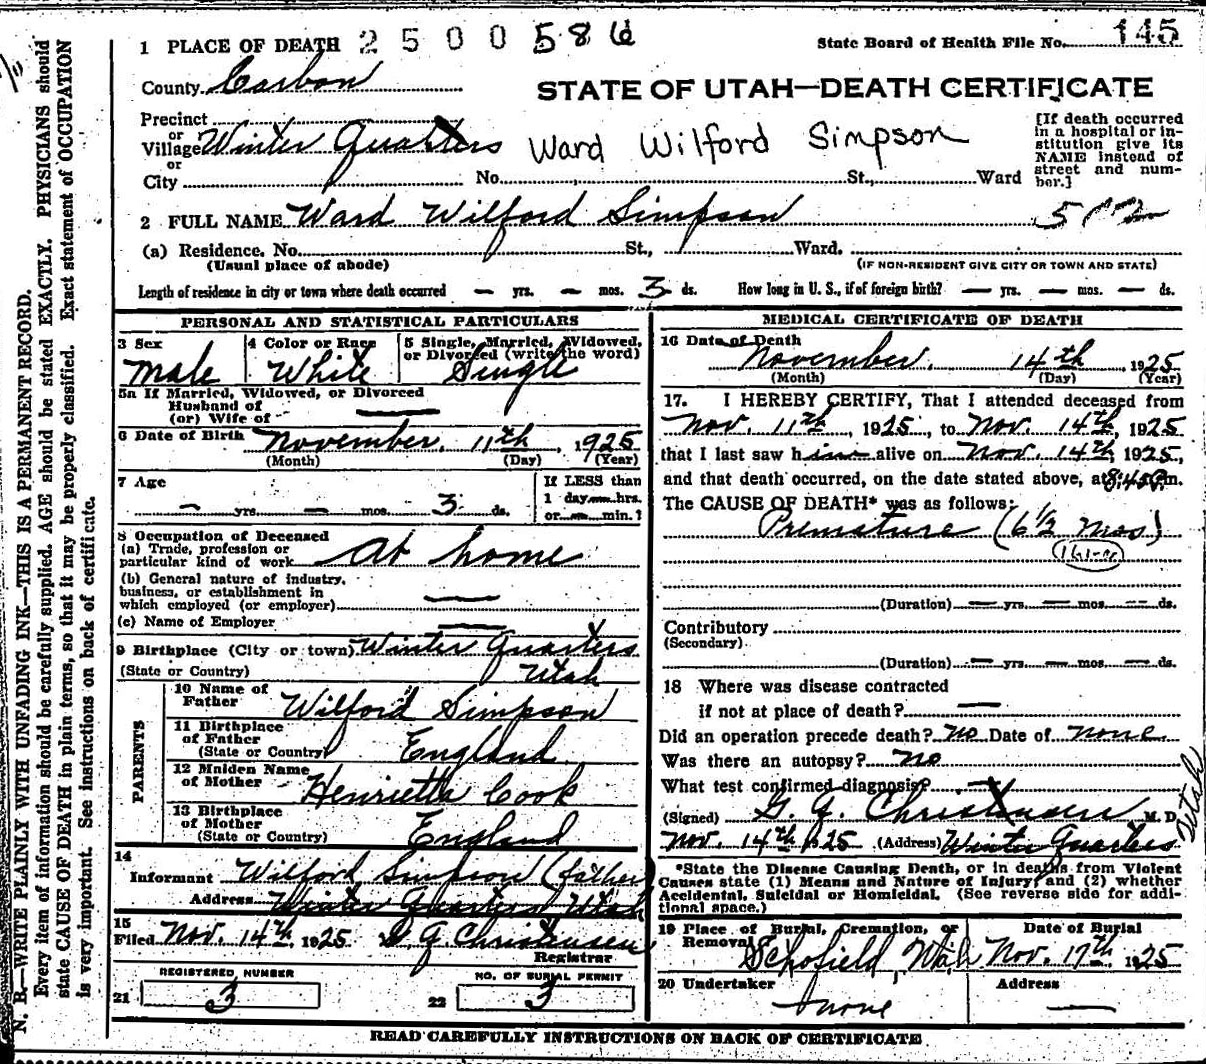 1 PLACE OF DEATH 2500586
State Board of Health File No. 145
County Carbon
STATE OF UTAH—DEATH CERTIFICATE
Precinct
or
Village Winter Quarters
Ward Wilford Simpson
[If death occurred in a hospital or institution give its NAME instead of street and number.]
or
City No. St., Ward
2 FULL NAME Ward Wilford Simpson
(a) Residence. No. St., Ward.
(Usual place of abode) (IF NON-RESIDENT GIVE CITY OR TOWN AND STATE)
Length of residence in city or town where death occurred — yrs. — mos. 3 ds. How long in U. S., if of foreign birth? — yrs. — mos. — ds.
PERSONAL AND STATISTICAL PARTICULARS
3 Sex 4 Color or Race 5 Single, Married, Widowed, or Divorced (write the word)
Male White Single
5a If Married, Widowed, or Divorced
Husband of
(or) Wife of —
6 Date of Birth November 11th, 1925
(Month) (Day) (Year)
7 Age If LESS than
1 day — hrs.
— yrs. — mos. 3 ds. or — min.?
8 Occupation of Deceased
(a) Trade, profession or
particular kind of work At home
(b) General nature of industry,
business, or establishment in
which employed (or employer) —
(c) Name of Employer —
9 Birthplace (City or town) Winter Quarters
(State or Country) Utah
PARENTS
10 Name of
Father Wilford Simpson
11 Birthplace
of Father
(State or Country) England
12 Maiden Name
of Mother Henrietta Cook
13 Birthplace
of Mother
(State or Country) England
14
Informant Wilford Simpson (father)
Address Winter Quarters Utah
15
Filed Nov. 14th, 1925 G Christensen
Registrar
REGISTERED NUMBER NO. OF BURIAL PERMIT
21 3 22 3
MEDICAL CERTIFICATE OF DEATH
16 Date of Death
November 14th 1925
(Month) (Day) (Year)
17. I HEREBY CERTIFY, That I attended deceased from
Nov. 11th, 1925, to Nov. 14th, 1925
that I last saw him alive on Nov. 14th, 1925,
and that death occurred, on the date stated above, at 8:45 P.m.
The CAUSE OF DEATH* was as follows:
Premature (6½ mos)
(Duration) — yrs. — mos. — ds.
Contributory
(Secondary)
(Duration) — yrs. — mos. — ds.
18 Where was disease contracted
if not at place of death? —
Did an operation precede death? No Date of none
Was there an autopsy? No
What test confirmed diagnosis? —
(Signed) Christensen M. D.
Nov. 14th 1925 (Address) Winter Quarters
Utah
*State the Disease Causing Death, or in deaths from Violent
Causes state (1) Means and Nature of Injury; and (2) whether
Accidental, Suicidal or Homicidal. (See reverse side for addi-
tional space.)
19 Place of Burial, Cremation, or Date of Burial
Removal Schofield, Utah Nov. 17th 1925
20 Undertaker Address
none —
READ CAREFULLY INSTRUCTIONS ON BACK OF CERTIFICATE
N. B.—WRITE PLAINLY WITH UNFADING INK—THIS IS A PERMANENT RECORD.
Every item of information should be carefully supplied. AGE should be stated EXACTLY. PHYSICIANS should
state CAUSE OF DEATH in plain terms, so that it may be properly classified. Exact statement of OCCUPATION
is very important. See instructions on back of certificate.